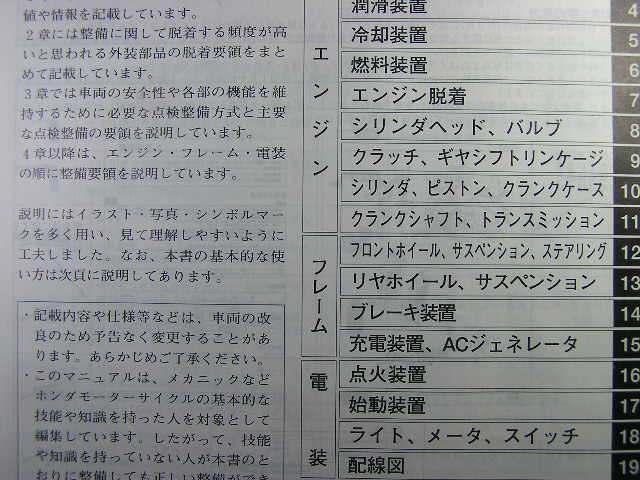 値や情報を記載しています。
2章には整備に関して脱着する頻度が高
いと思われる外装部品の脱着要領をまと
めて記載しています。
3章では車両の安全性や各部の機能を維
持するために必要な点検整備方式と主要
な点検整備の要領を説明しています。
4章以降は、エンジン・フレーム・電装
の順に整備要領を説明しています。
説明にはイラスト・写真・シンボルマー
クを多く用い、見て理解しやすいように
工夫しました。なお、本書の基本的な使
い方は次頁に説明してあります。
・記載内容や仕様等などは、車両の改
良のため予告なく変更することがあ
ります。あらかじめご了承ください。
・このマニュアルは、メカニックなど
ホンダモーターサイクルの基本的な
技能や知識を持った人を対象として
編集しています。したがって、技能
や知識を持っていない人が本書のと
おりに整備しても正しい整備ができ
エンジン
潤滑装置 4
冷却装置 5
燃料装置 6
エンジン脱着 7
シリンダヘッド、バルブ 8
クラッチ、ギヤシフトリンケージ 9
シリンダ、ピストン、クランクケース 10
クランクシャフト、トランスミッション 11
フレーム
フロントホイール、サスペンション、ステアリング 12
リヤホイール、サスペンション 13
ブレーキ装置 14
電装
充電装置、ACジェネレータ 15
点火装置 16
始動装置 17
ライト、メータ、スイッチ 18
配線図 19